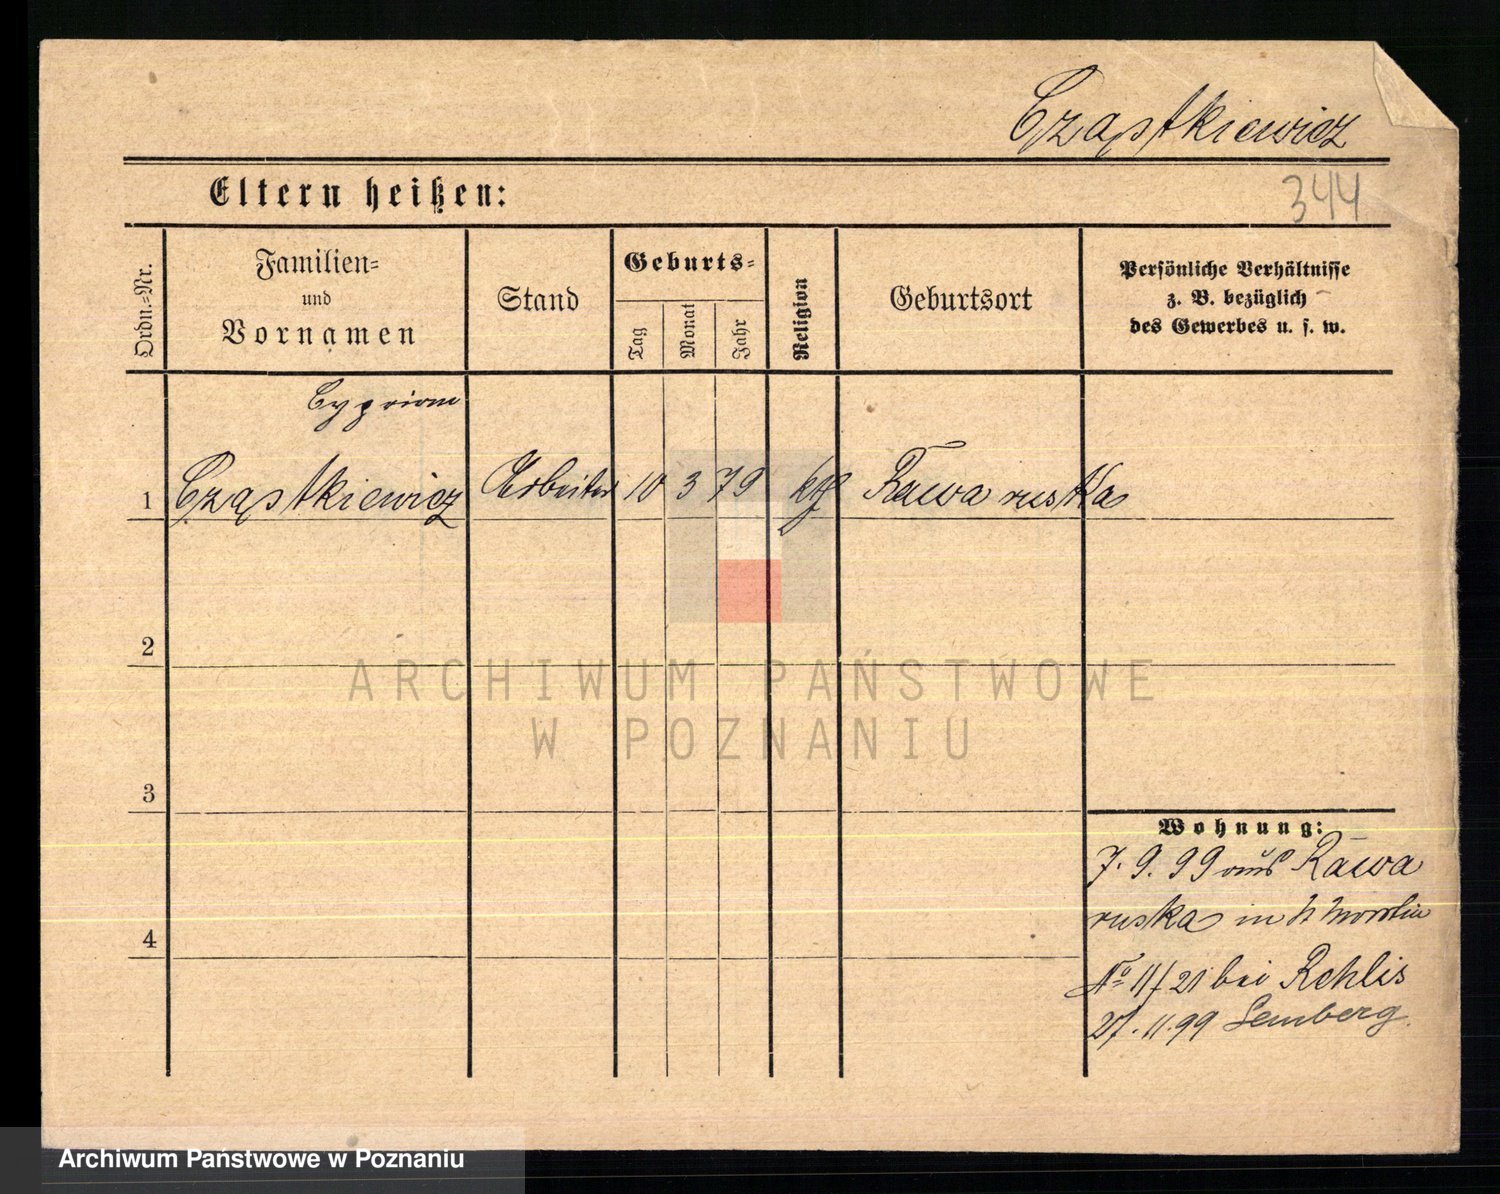 Cząstkiewicz
Eltern heißen:
344
Ordn.-Nr.
Familien-
und
Vornamen
Stand
Geburts-
Tag
Monat
Jahr
Religion
Geburtsort
Persönliche Verhältnisse
z. B. bezüglich
des Gewerbes u. s. w.
Cyprian
1 Cząstkiewicz Arbeiter 10 3 79 kth Rawa ruska
2
ARCHIWUM PAŃSTWOWE
W POZNANIU
3
Wohnung:
7. 9. 99 aus Rawa
ruska in
4
No 11/21 bei Rehlis
27. 11. 99 Lemberg.
Archiwum Państwowe w Poznaniu